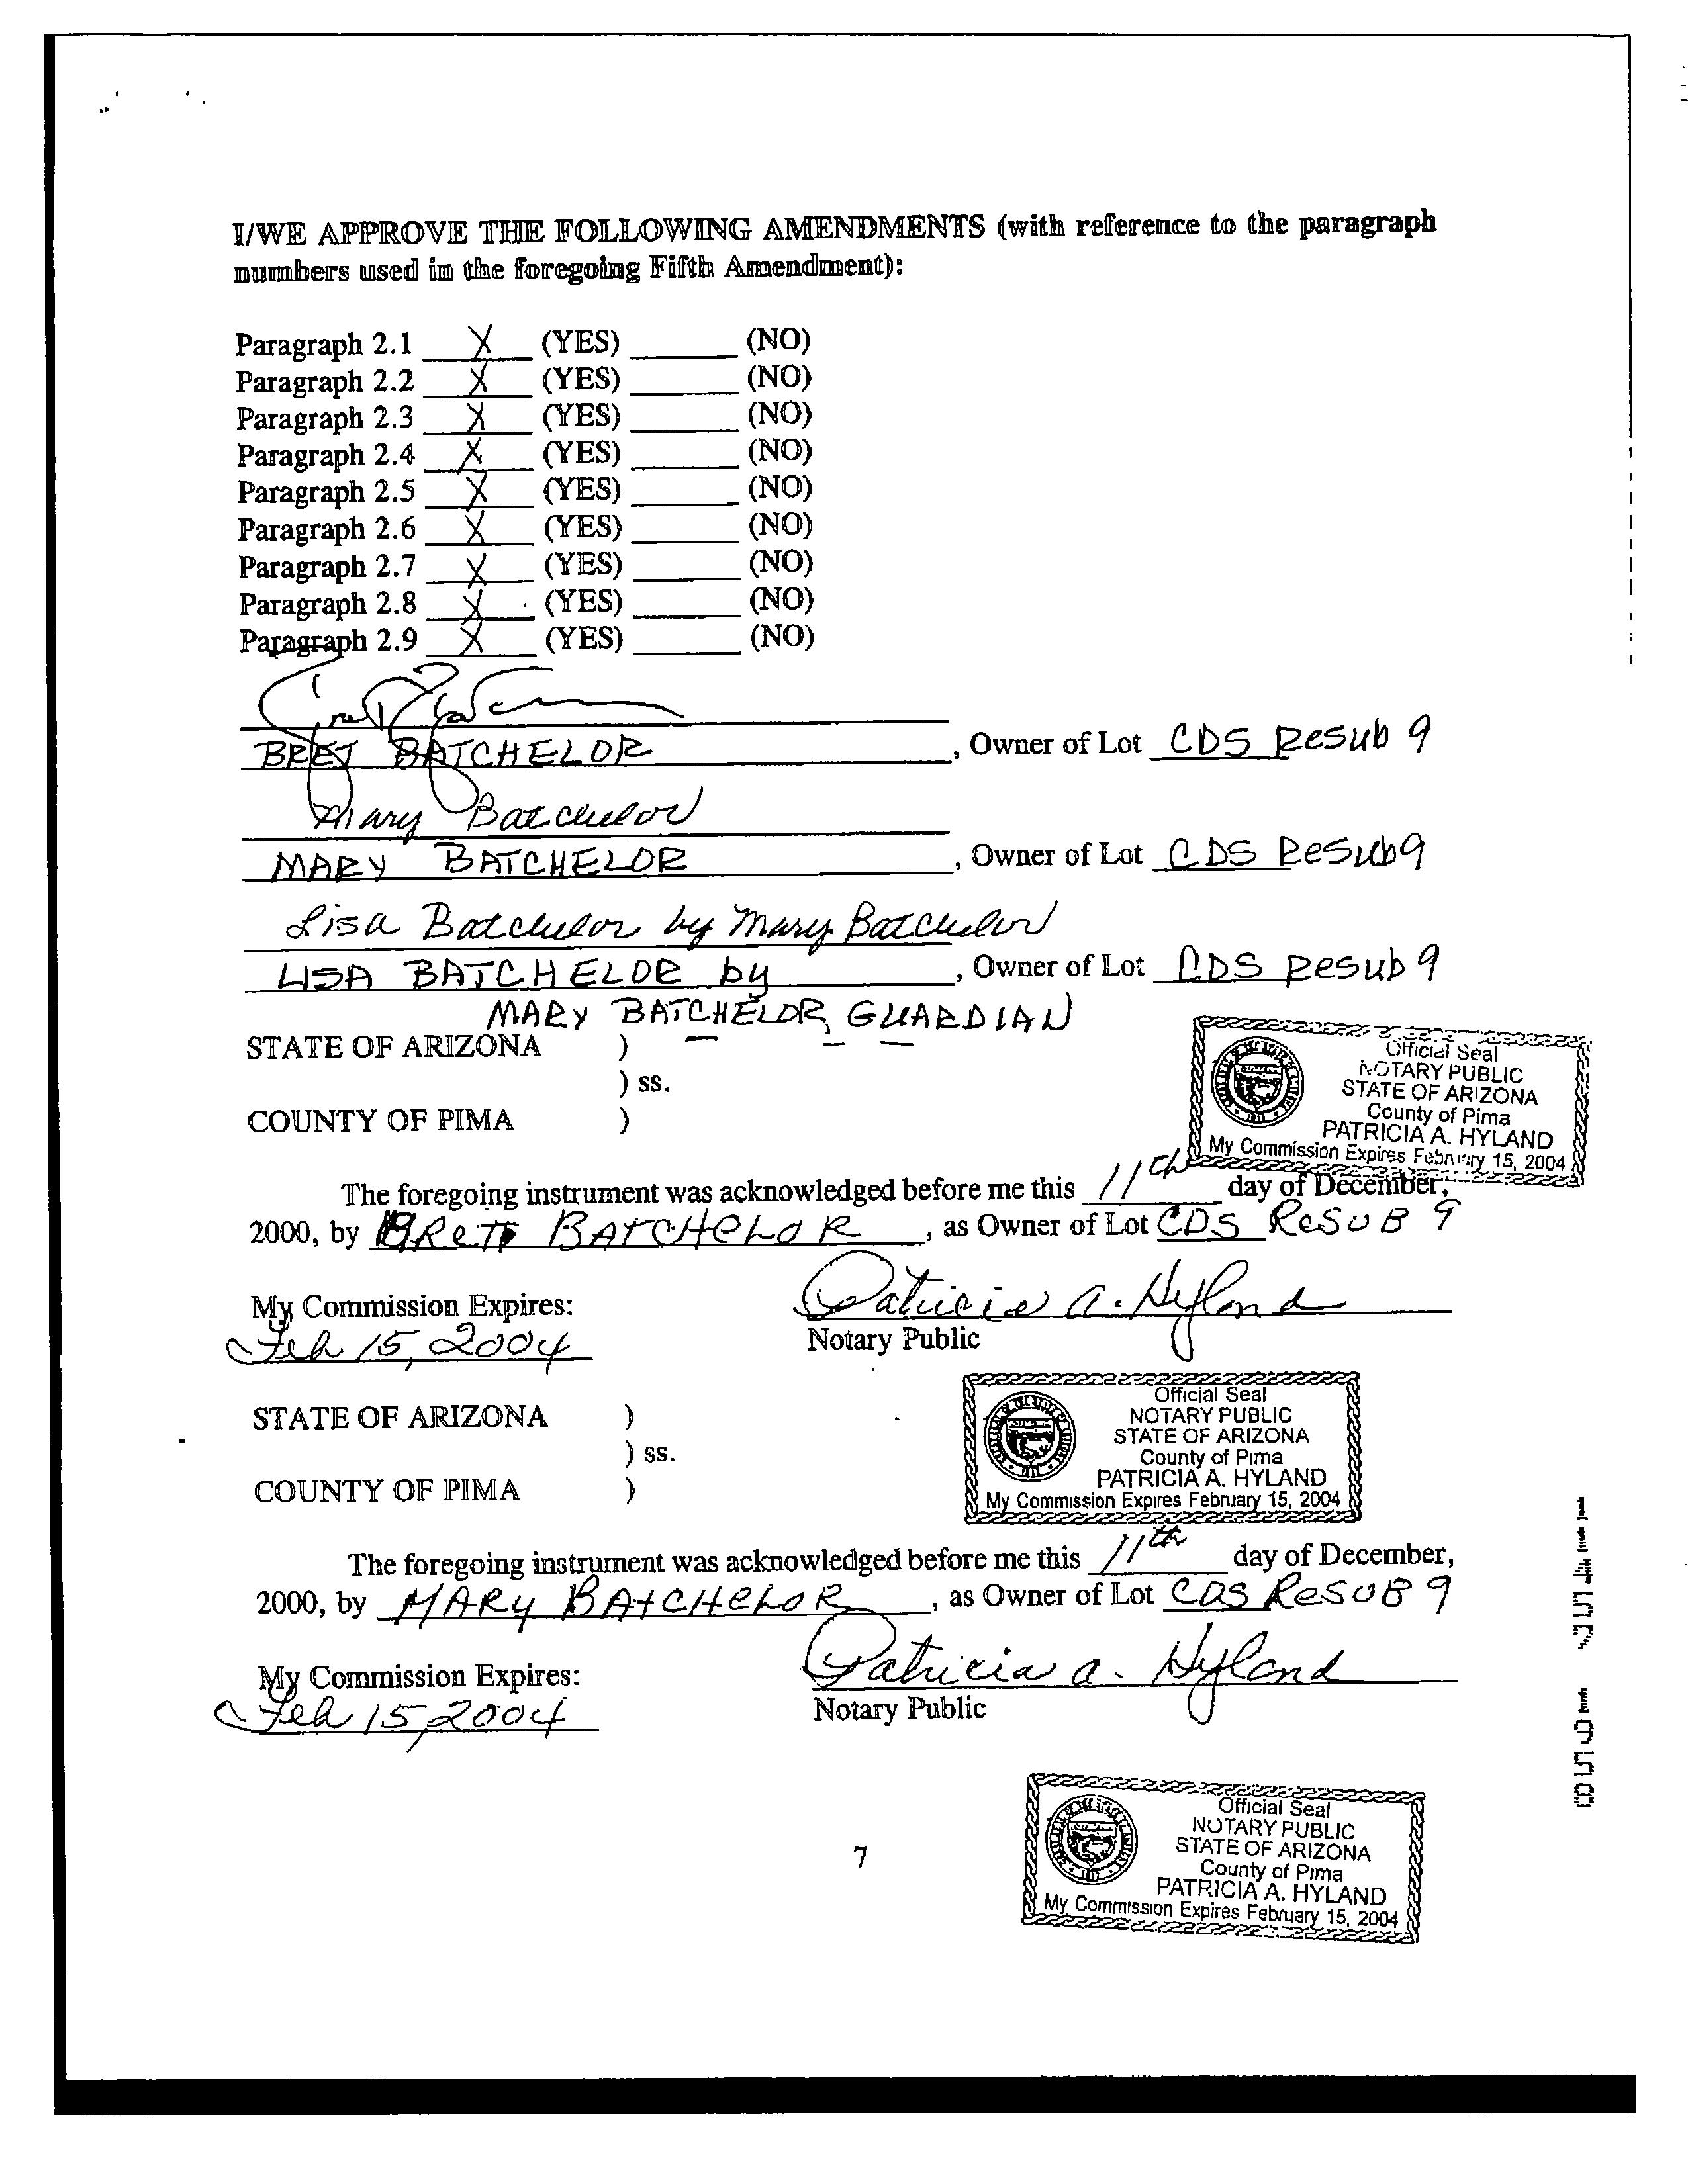 I/WE APPROVE THE FOLLOWING AMENDMENTS (with reference to the paragraph
numbers used in the foregoing Fifth Amendment):
Paragraph 2.1 X (YES) (NO)
Paragraph 2.2 X (YES) (NO)
Paragraph 2.3 X (YES) (NO)
Paragraph 2.4 X (YES) (NO)
Paragraph 2.5 X (YES) (NO)
Paragraph 2.6 X (YES) (NO)
Paragraph 2.7 X (YES) (NO)
Paragraph 2.8 X (YES) (NO)
Paragraph 2.9 X (YES) (NO)
BRET BATCHELOR, Owner of Lot CDS Resub 9
Mary Batchelor
MARY BATCHELOR, Owner of Lot CDS Resub 9
Lisa Batchelor by Mary Batchelor
LISA BATCHELOR by, Owner of Lot CDS Resub 9
MARY BATCHELOR, GUARDIAN
STATE OF ARIZONA )
) ss.
COUNTY OF PIMA )
Official Seal
NOTARY PUBLIC
STATE OF ARIZONA
County of Pima
PATRICIA A. HYLAND
My Commission Expires February 15, 2004
The foregoing instrument was acknowledged before me this 11th day of December,
2000, by BRETT BATCHELOR, as Owner of Lot CDS ReSUB 9
Patricia A. Hyland
My Commission Expires:
Feb 15, 2004
Notary Public
STATE OF ARIZONA )
) ss.
COUNTY OF PIMA )
Official Seal
NOTARY PUBLIC
STATE OF ARIZONA
County of Pima
PATRICIA A. HYLAND
My Commission Expires February 15, 2004
The foregoing instrument was acknowledged before me this 11th day of December,
2000, by MARY BATCHELOR, as Owner of Lot CDS ReSUB 9
Patricia A. Hyland
My Commission Expires:
Feb 15, 2004
Notary Public
7
Official Seal
NOTARY PUBLIC
STATE OF ARIZONA
County of Pima
PATRICIA A. HYLAND
My Commission Expires February 15, 2004